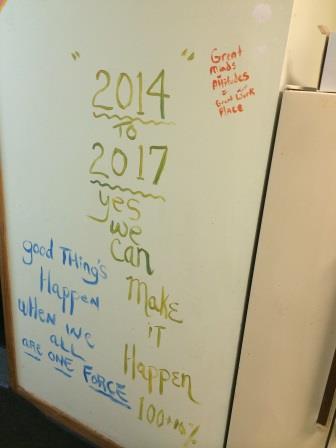 " "
2014
TO
2017
yes
we
can
Make
iT
Happen
100+15%
good THing's
Happen
wHen we
all
are ONE FORCE
Great
minds
Attitudes
=
Great work
Place